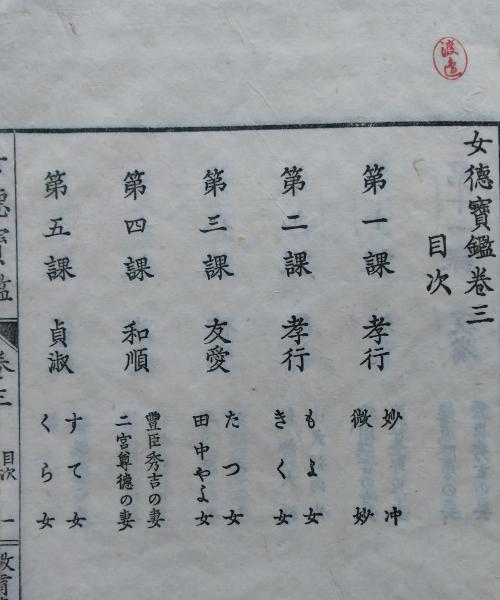 渡邉
女德寶鑑卷三
目次
第一課 孝行
妙冲
微妙
第二課 孝行
もよ女
きく女
第三課 友愛
たつ女
田中やよ女
第四課 和順
豐臣秀吉の妻
二宮尊德の妻
第五課 貞淑
すて女
くら女
女德寶鑑
卷三
目次
一